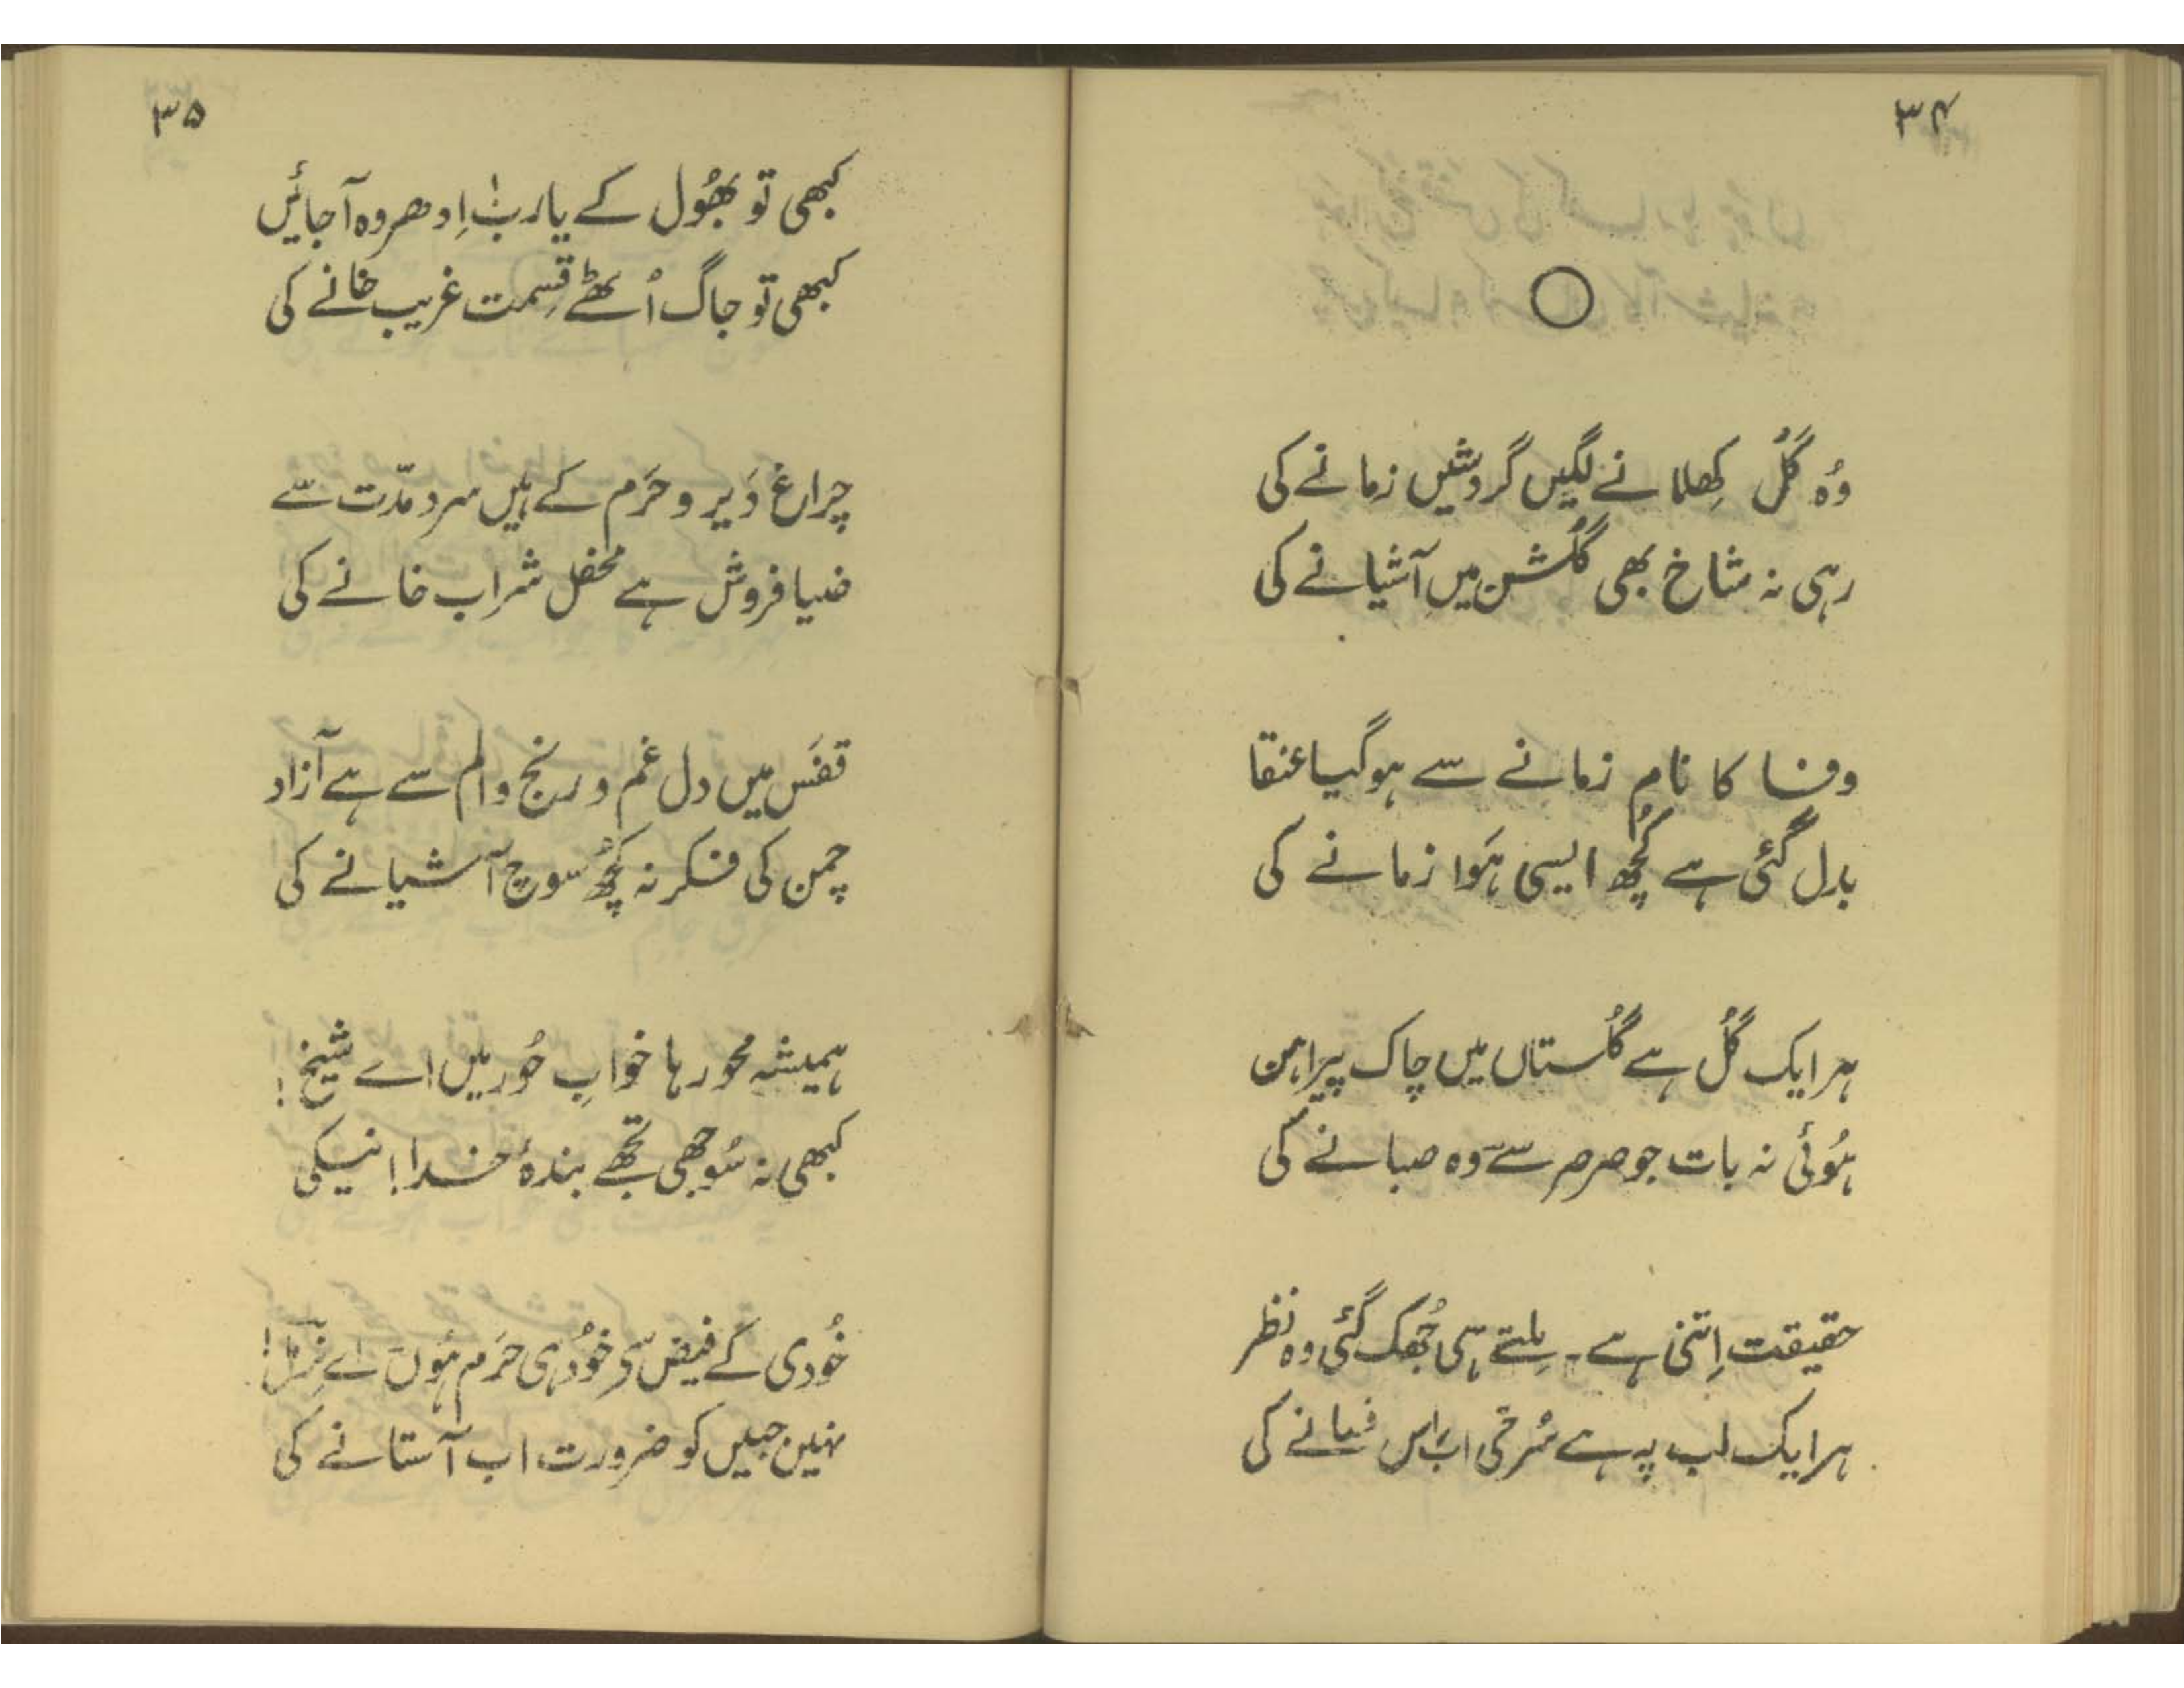 ۳۴
وُہ گُل کِھلانے لگیں گردشیں زمانے کی
رہی نہ شاخ بھی گلشن میں آشیانے کی
وفا کا نام زمانے سے ہوگیا عنقا
بدل گئی ہے کُچھ ایسی ہَوا زمانے کی
ہر ایک گُل ہے گُلستاں میں چاک پیراہن
ہُوئی نہ بات جو صرصر سے وہ صبا نے کی
حقیقت اِتنی ہے۔ مِلتے ہی جُھک گئی وہ نظر
ہر ایک لب پہ ہے سُرخی اب اِس فسانے کی
۳۵
کبھی تو بُھول کے یارب اِدھر وہ آجائیں
کبھی تو جاگ اُٹھے قِسمت غریب خانے کی
چراغ دَیر و حَرَم کے ہیں سرد مدّت سے
ضیا فروش ہے محفل شراب خانے کی
قفَس میں دل غم و رنج و الم سے ہے آزاد
چمن کی فکر نہ کُچھ سوچ آشیانے کی
ہمیشہ محو رہا خوابِ حُور میں اے شیخ!
کبھی نہ سُوجھی تجھے بندۂ خدا! نیکی
خُودی کے فیض سے خُود ہی حَرَم ہُوں اے !
نہیں جبیں کو ضرورت اب آستانے کی